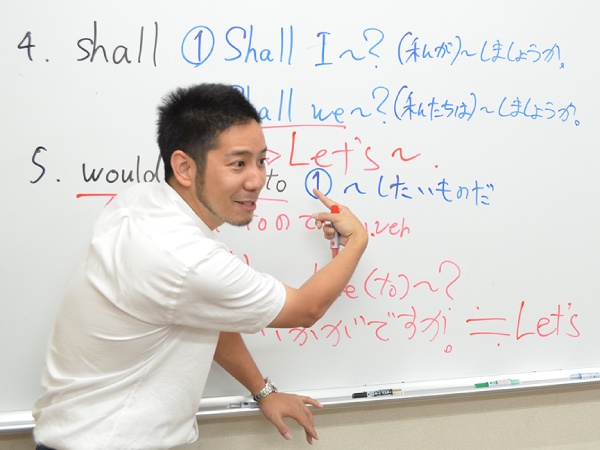 4. shall ① Shall I ~? (私が)~しましょうか。
hall we ~? (私たちは)~しましょうか。
Let's ~.
5. would to ① ~したいものだ
e (to) ~?
いかがですか。 ≒ Let's